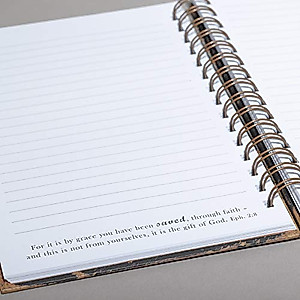 For it is by grace you have been saved, through faith –
and this is not from yourselves, it is the gift of God. Eph. 2,8